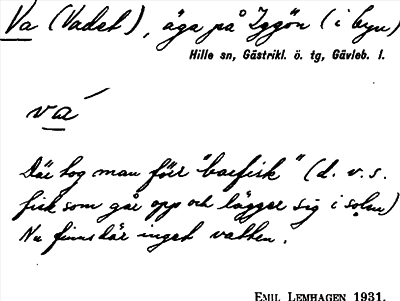 Va (Vadet), äga på Iggön (i byn)
Hille sn, Gästrikl. ö. tg, Gävleb. l.
vá
Där tog man förr "baefisk" (d. v. s.
fisk som går opp och lägger sig i solen)
Nu finns där inget vatten.
EMIL LEMHAGEN 1931.